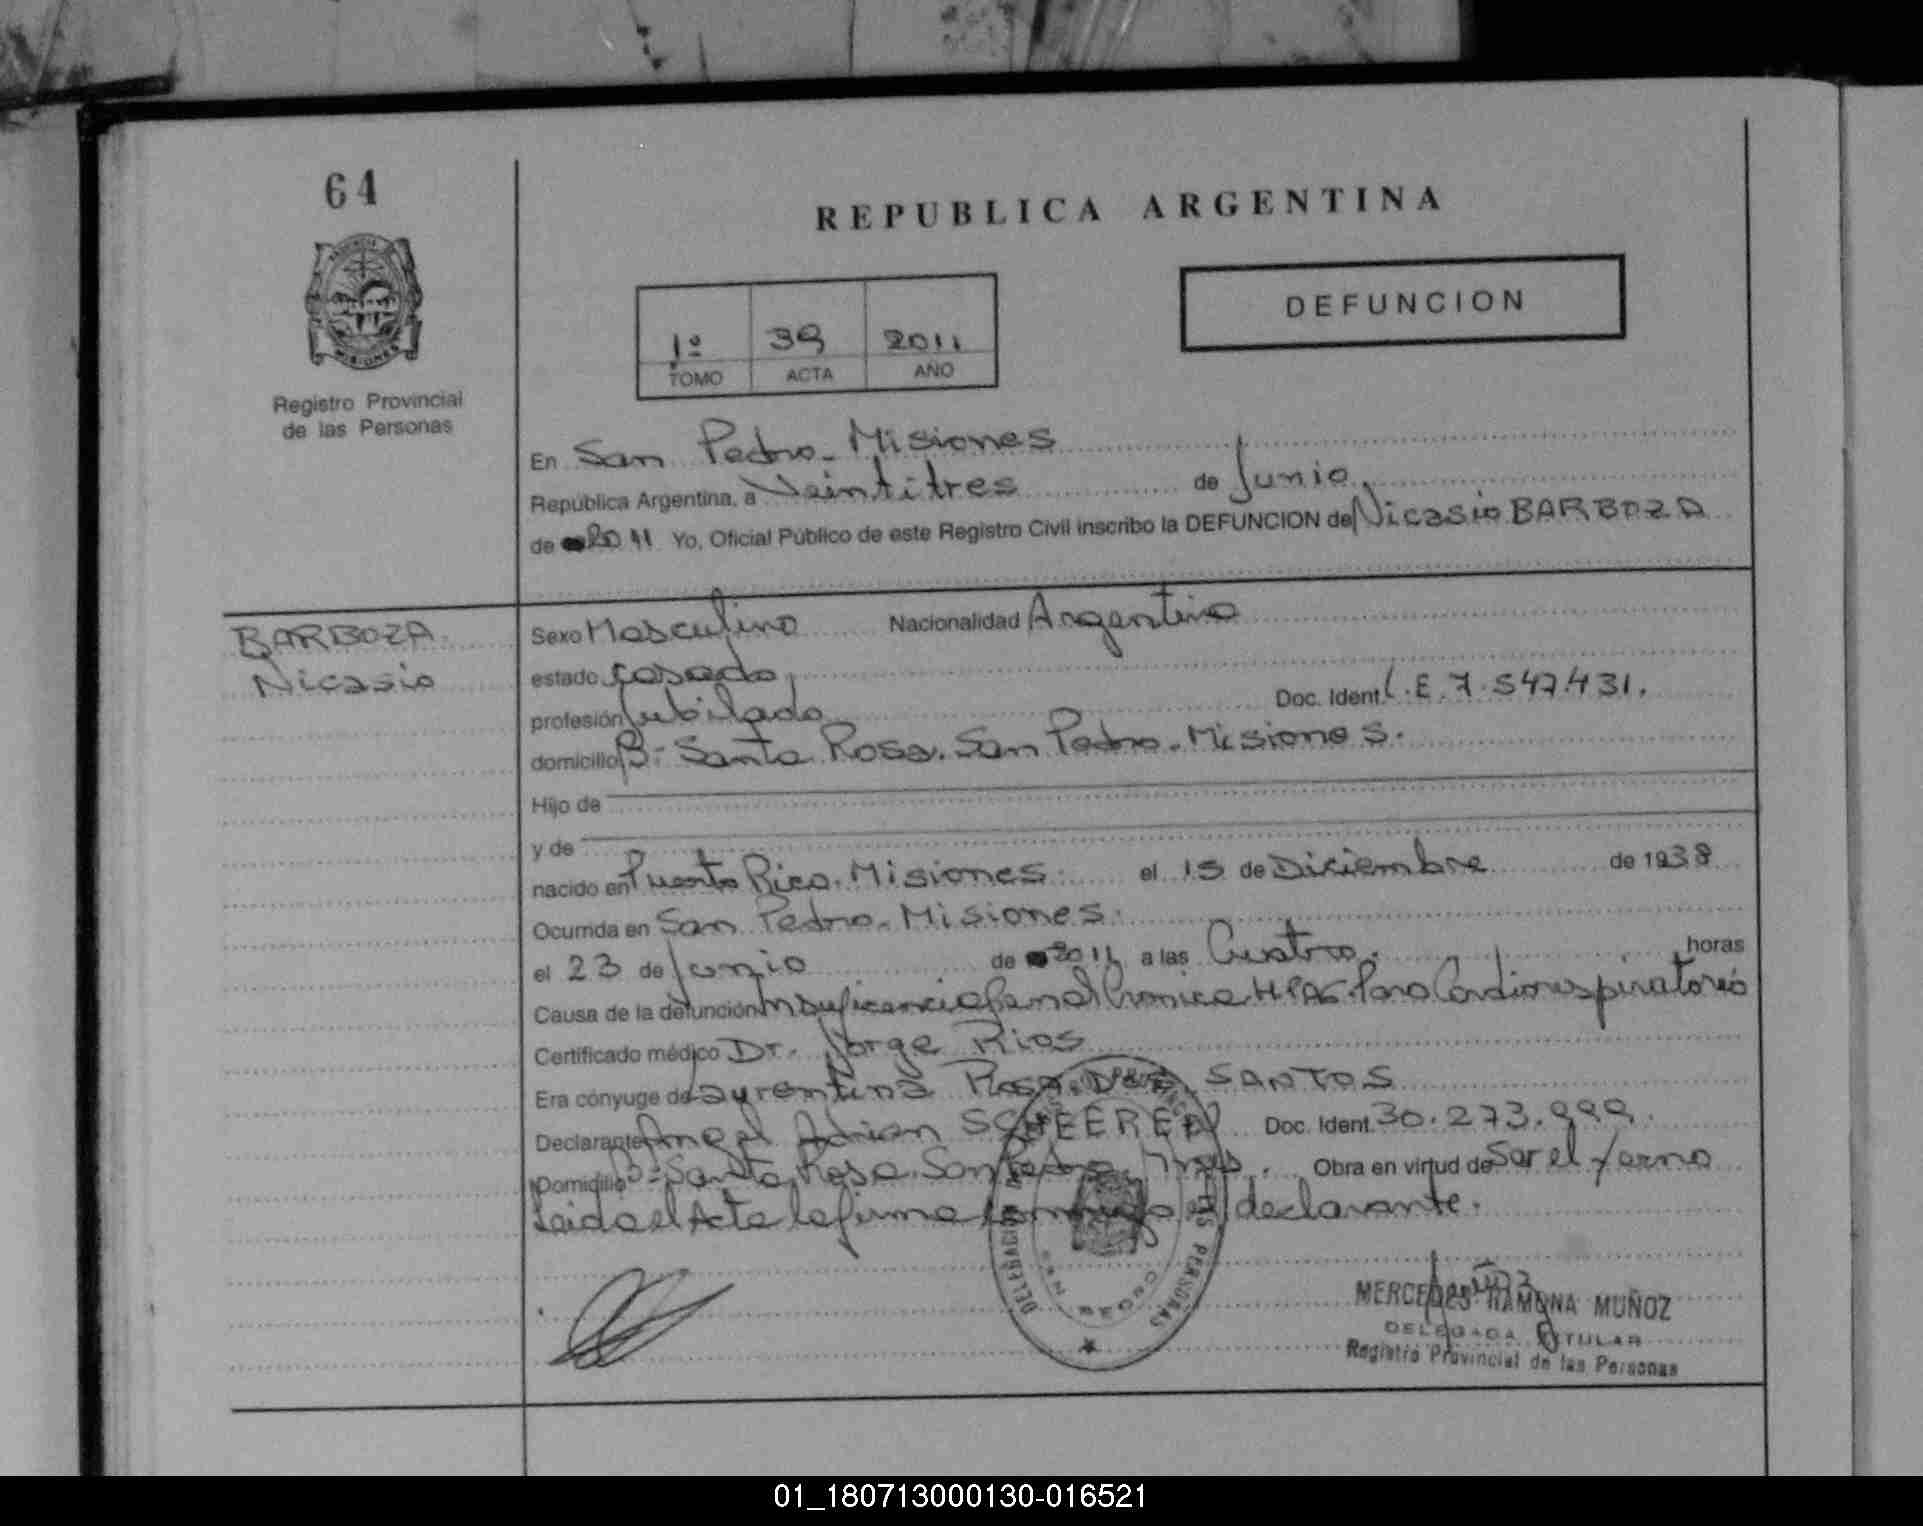 64
REPUBLICA ARGENTINA
MISIONES
Registro Provincial
de las Personas
1º 39 2011
TOMO ACTA AÑO
DEFUNCION
En San Pedro - Misiones
República Argentina, a Veintitres de Junio
de 2011 Yo, Oficial Público de este Registro Civil inscribo la DEFUNCION de Nicasio BARBOZA
BARBOZA
Nicasio
Sexo Masculino Nacionalidad Argentina
estado Casado
profesión Jubilado Doc. Ident. L.E.7.547.431.
domicilio Bº Santa Rosa. San Pedro. Misiones.
Hijo de
y de
nacido en Puerto Rico. Misiones el 15 de Diciembre de 1938
Ocurrida en San Pedro - Misiones.
el 23 de Junio de 2011 a las Cuatro. horas
Causa de la defunción Insuficiencia Renal Cronica Paro Cardiorrespiratorio
Certificado médico Dr. Jorge Rios
Era cónyuge de Laurentina Rosa DOS SANTOS
Declarante Angel Adrian Doc. Ident. 30.273.999.
Domicilio Bº Santa Rosa. San Pedro. Mnes. Obra en virtud de Ser el Yerno
Leida el Acta la firma conmigo el declarante.
DELEGACION PERSONAS
MERCEDES RAMONA MUÑOZ
DELEGADA TITULAR
Registro Provincial de las Personas
01_180713000130-016521